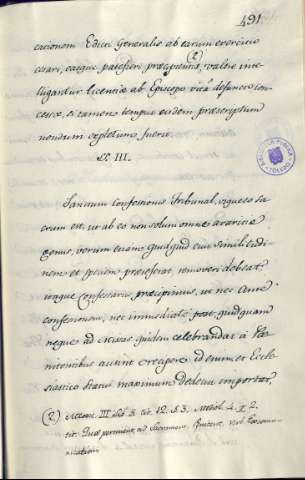 491
cationem Edicti Generalis ab earum exercitio
cesari, easque patefieri præcipimus, (2) valere inte-
lligantur licentiæ ab Episcopo vita defuncto con-
cessæ, si tamen tempus eisdem præscriptum
nondum expletum fuerit.
III.
Sanctum confessionis Tribunal, usqueo sa-
crum est, ut ab eo non solum omne avaritiæ
genus, verum etiam quidquid eius similitudi-
nem et speciem præseferat, removeri debeat:
itaque Confessariis præcipimus, ut nec ante
confessionem, nec immediate post quidquam
neque ad Missas quidem celebrandas à Pæ-
nitentibus exigere id enim et Eccle-
siastico statui maximum dedecus importat,
(2) Mecen. III lib. 3. tit. 12. § 3.
tit. Quæ pertinent ad Sacramen.